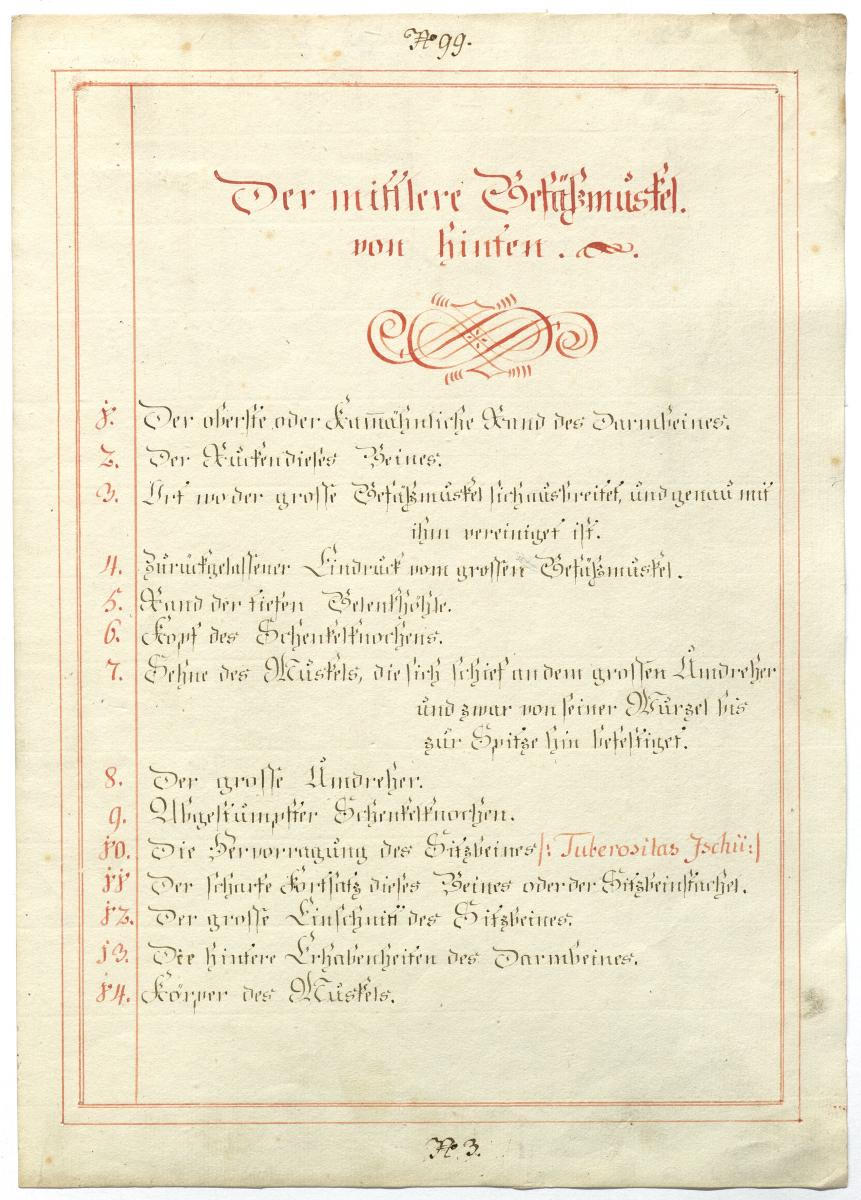 No 99.
Der mittlere Gesäßmuskel.
von hinten.
1. Der oberste oder Kam̄ähnliche Rand des Darmbeines.
2. Der Rücken dieses Beines.
3. Ort wo der grosse Gesäßmuskel sich ausbreitet, und genau mit
ihm vereiniget ist.
4. Zurückgelassener Eindruck vom grossen Gesäßmuskel.
5. Rand der tiefen Gelenkhöhle.
6. Kopf des Schenkelknochens.
7. Sehne des Muskels, die sich schief an dem grossen Umdreher
und zwar von seiner Wurzel bis
zur Spitze hin befestiget.
8. Der grosse Umdreher.
9. Abgestumpfter Schenkelknochen.
10. Die Hervorragung des Sitzbeines /: Tuberositas Jschii :/
11. Der scharfe Fortsatz dieses Beines oder der Sitzbeinstachel.
12. Der grosse Einschnitt des Sitzbeines.
13. Die hintere Erhabenheiten des Darmbeines.
14. Körper des Muskels.
No 3.